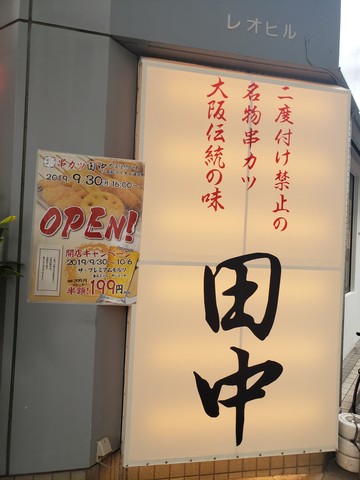 レオヒル
二度付け禁止の
名物串カツ
大阪伝統の味
田中
串カツ田中
2019.9.30月 16:00〜
OPEN!
開店キャンペーン
2019/9/30〜10/6
ザ・プレミアムモルツ
半額!199円